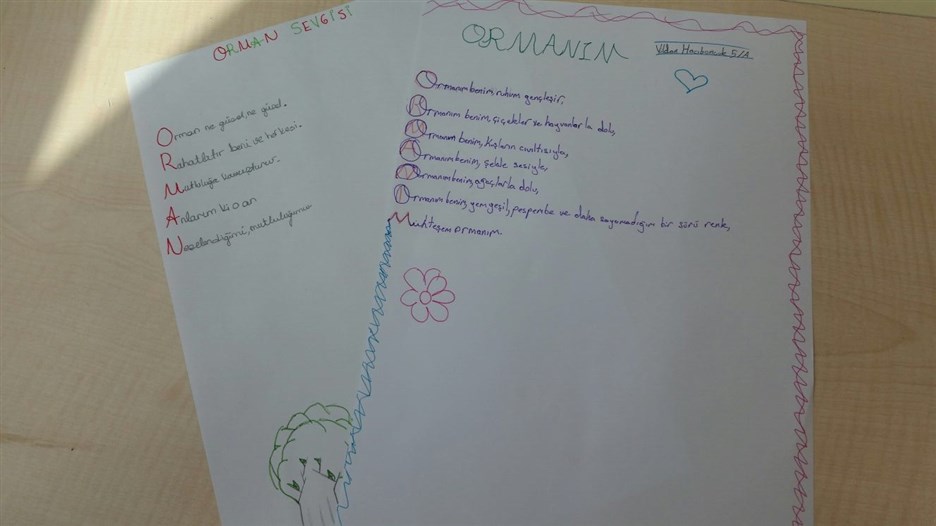 ORMAN SEVGİSİ
Orman ne güzel, ne güzel.
Rahatlatır beni ve herkesi.
Mutluluğa kavuşturur.
Anlarım ki o an
Neşelendiğimi, mutluluğumu
ORMANIM
5/A
Ormanım benim, ruhum gençleşir,
Ormanım benim, çiçekler ve hayvanlarla dolu,
Ormanım benim, Kuşların cıvıltısıyla,
Ormanım benim, şelale sesiyle,
Ormanım benim, ağaçlarla dolu,
Ormanım benim, yem yeşil, pespembe ve daha sayamadığım bir sürü renk,
Muhteşem ormanım.